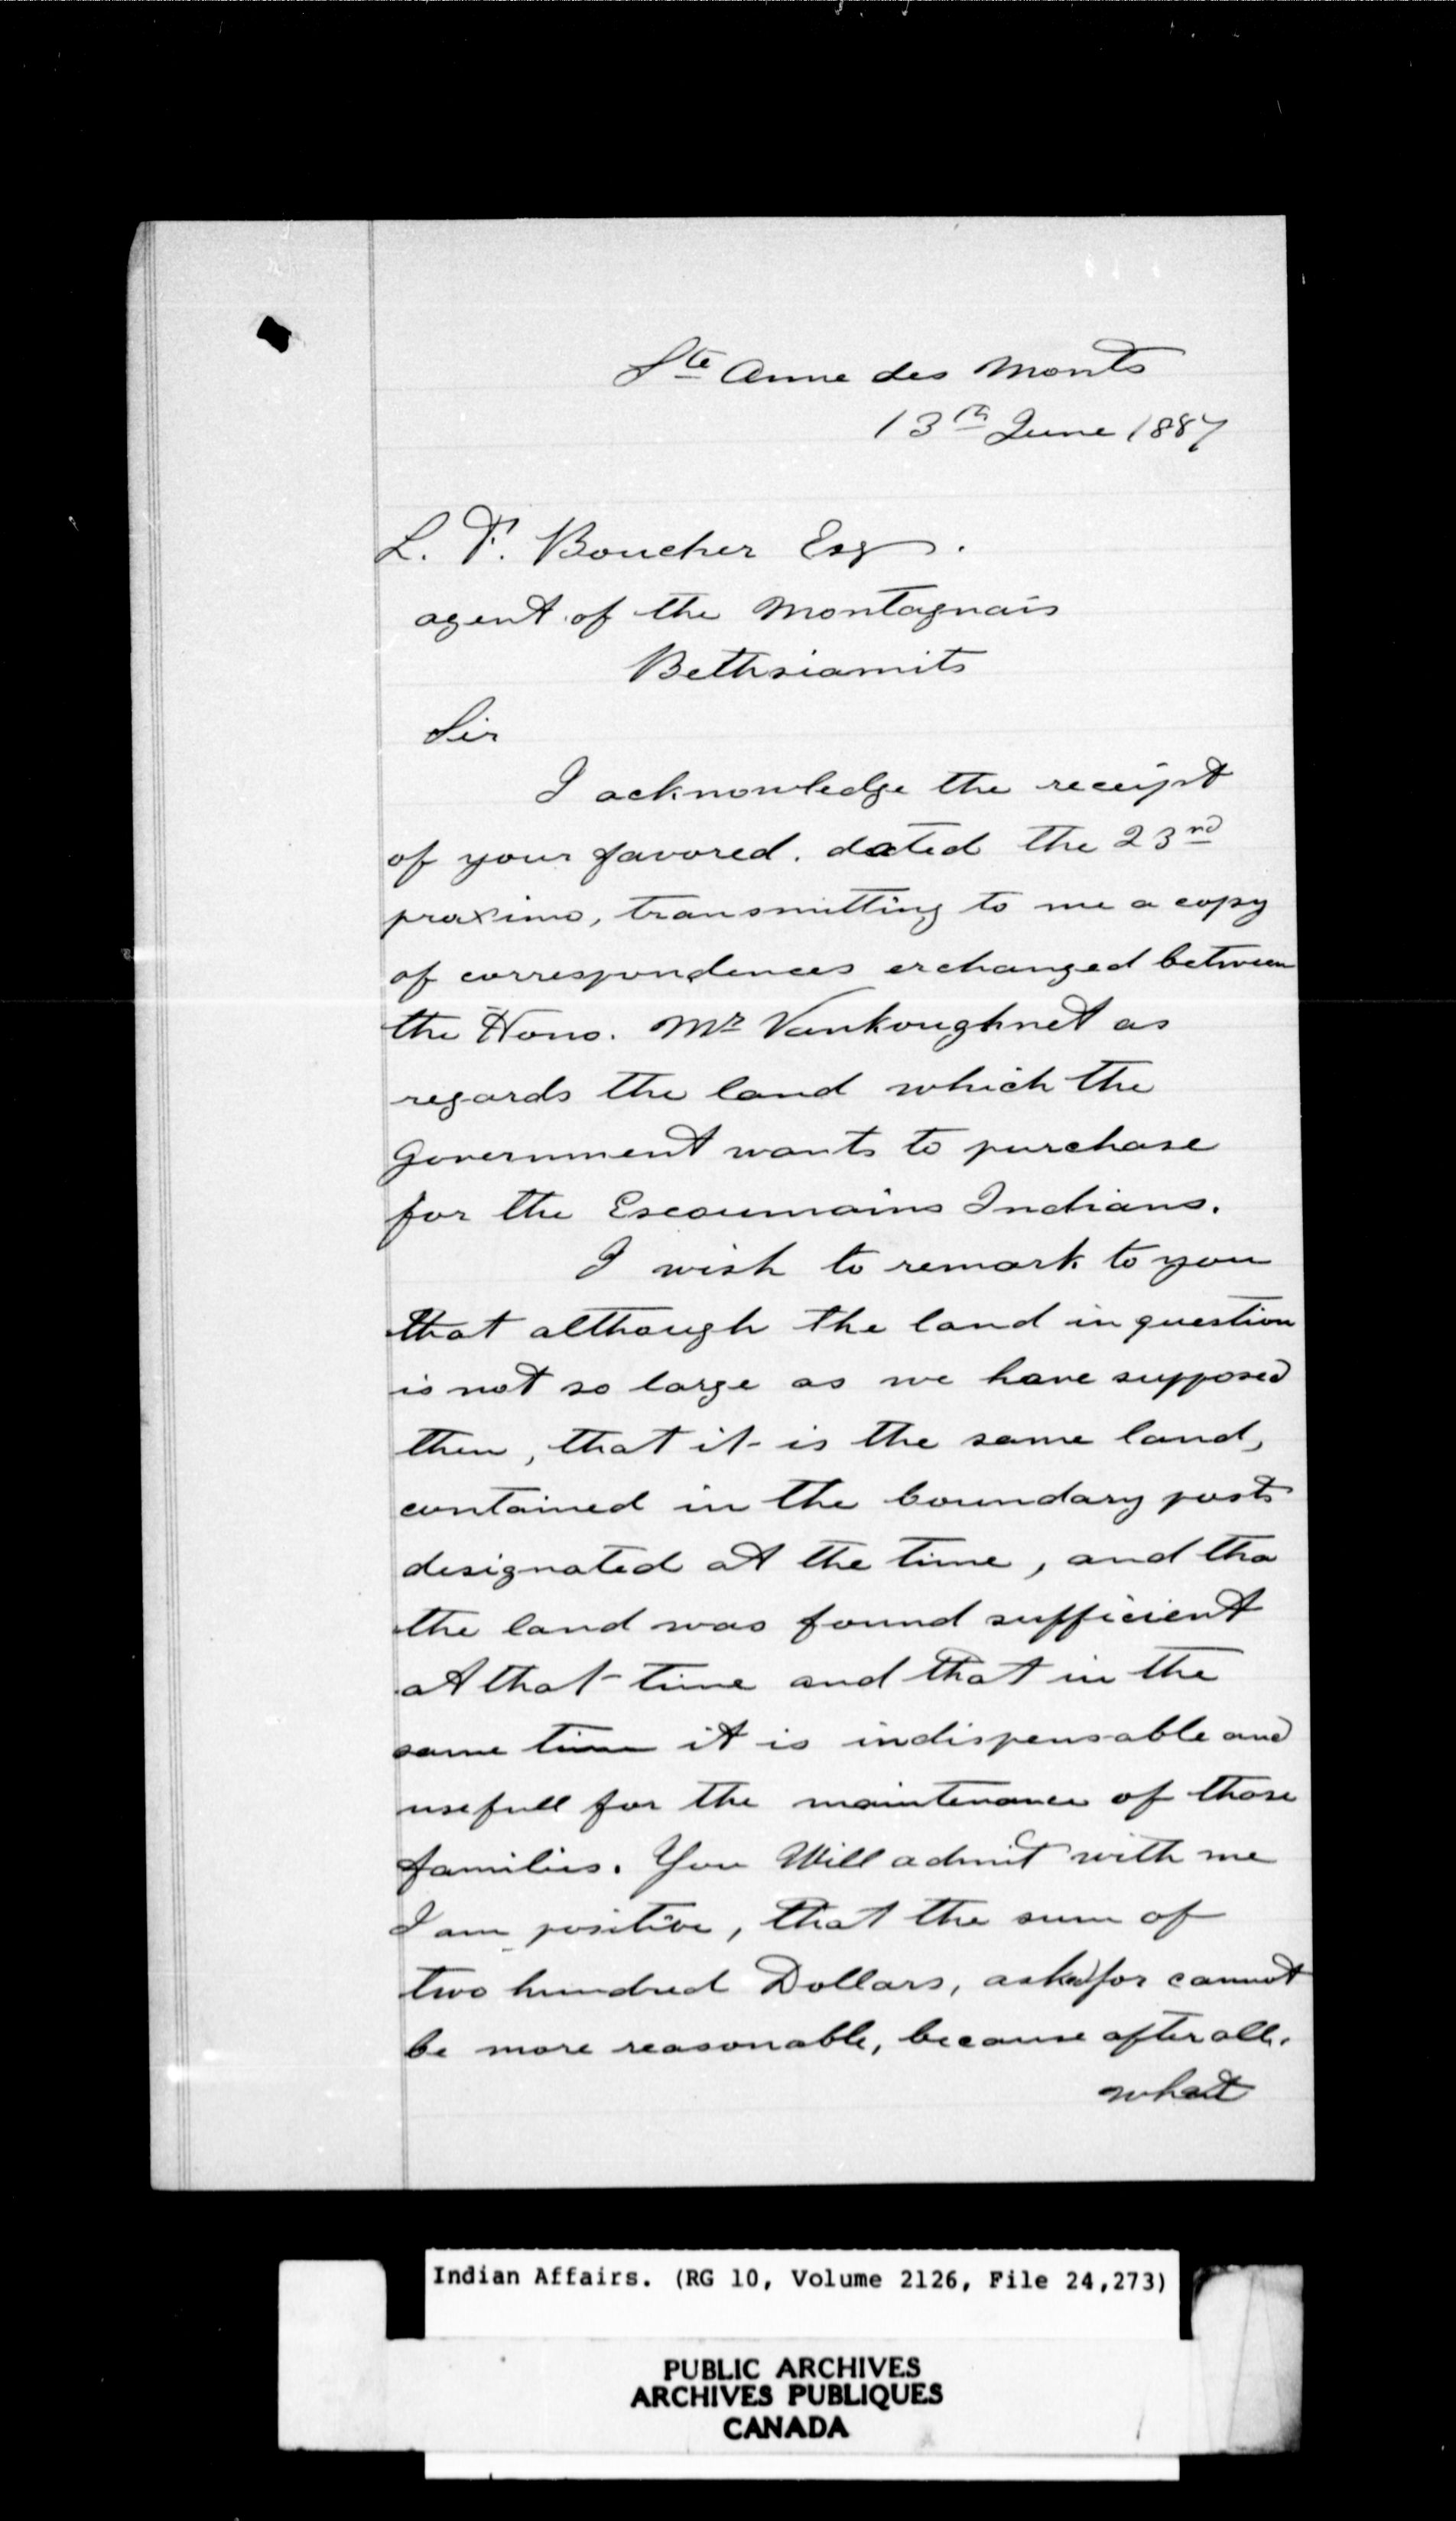 Ste Anne des Monts
13th June 1887
L. F. Boucher Esq.
agent of the Montagnais
Bethsiamits
Sir
I acknowledge the receipt
of your favored. dated the 23rd
proximo, transmitting to me a copy
of correspondences exchanged between
the Hono. Mr Vankoughnet as
regards the land which the
Government wants to purchase
for the Escoumains Indians.
I wish to remark to you
that although the land in question
is not so large as we have supposed
then, that it is the same land,
contained in the boundary posts
designated at the time, and tha
the land was found sufficient
at that time and that in the
same time it is indispensable and
usefull for the maintenance of those
families. You Will admit with me
I am positive, that the sum of
two hundred Dollars, asked for cannot
be more reasonable, because after all,
what
Indian Affairs. (RG 10, Volume 2126, File 24,273)
PUBLIC ARCHIVES
ARCHIVES PUBLIQUES
CANADA